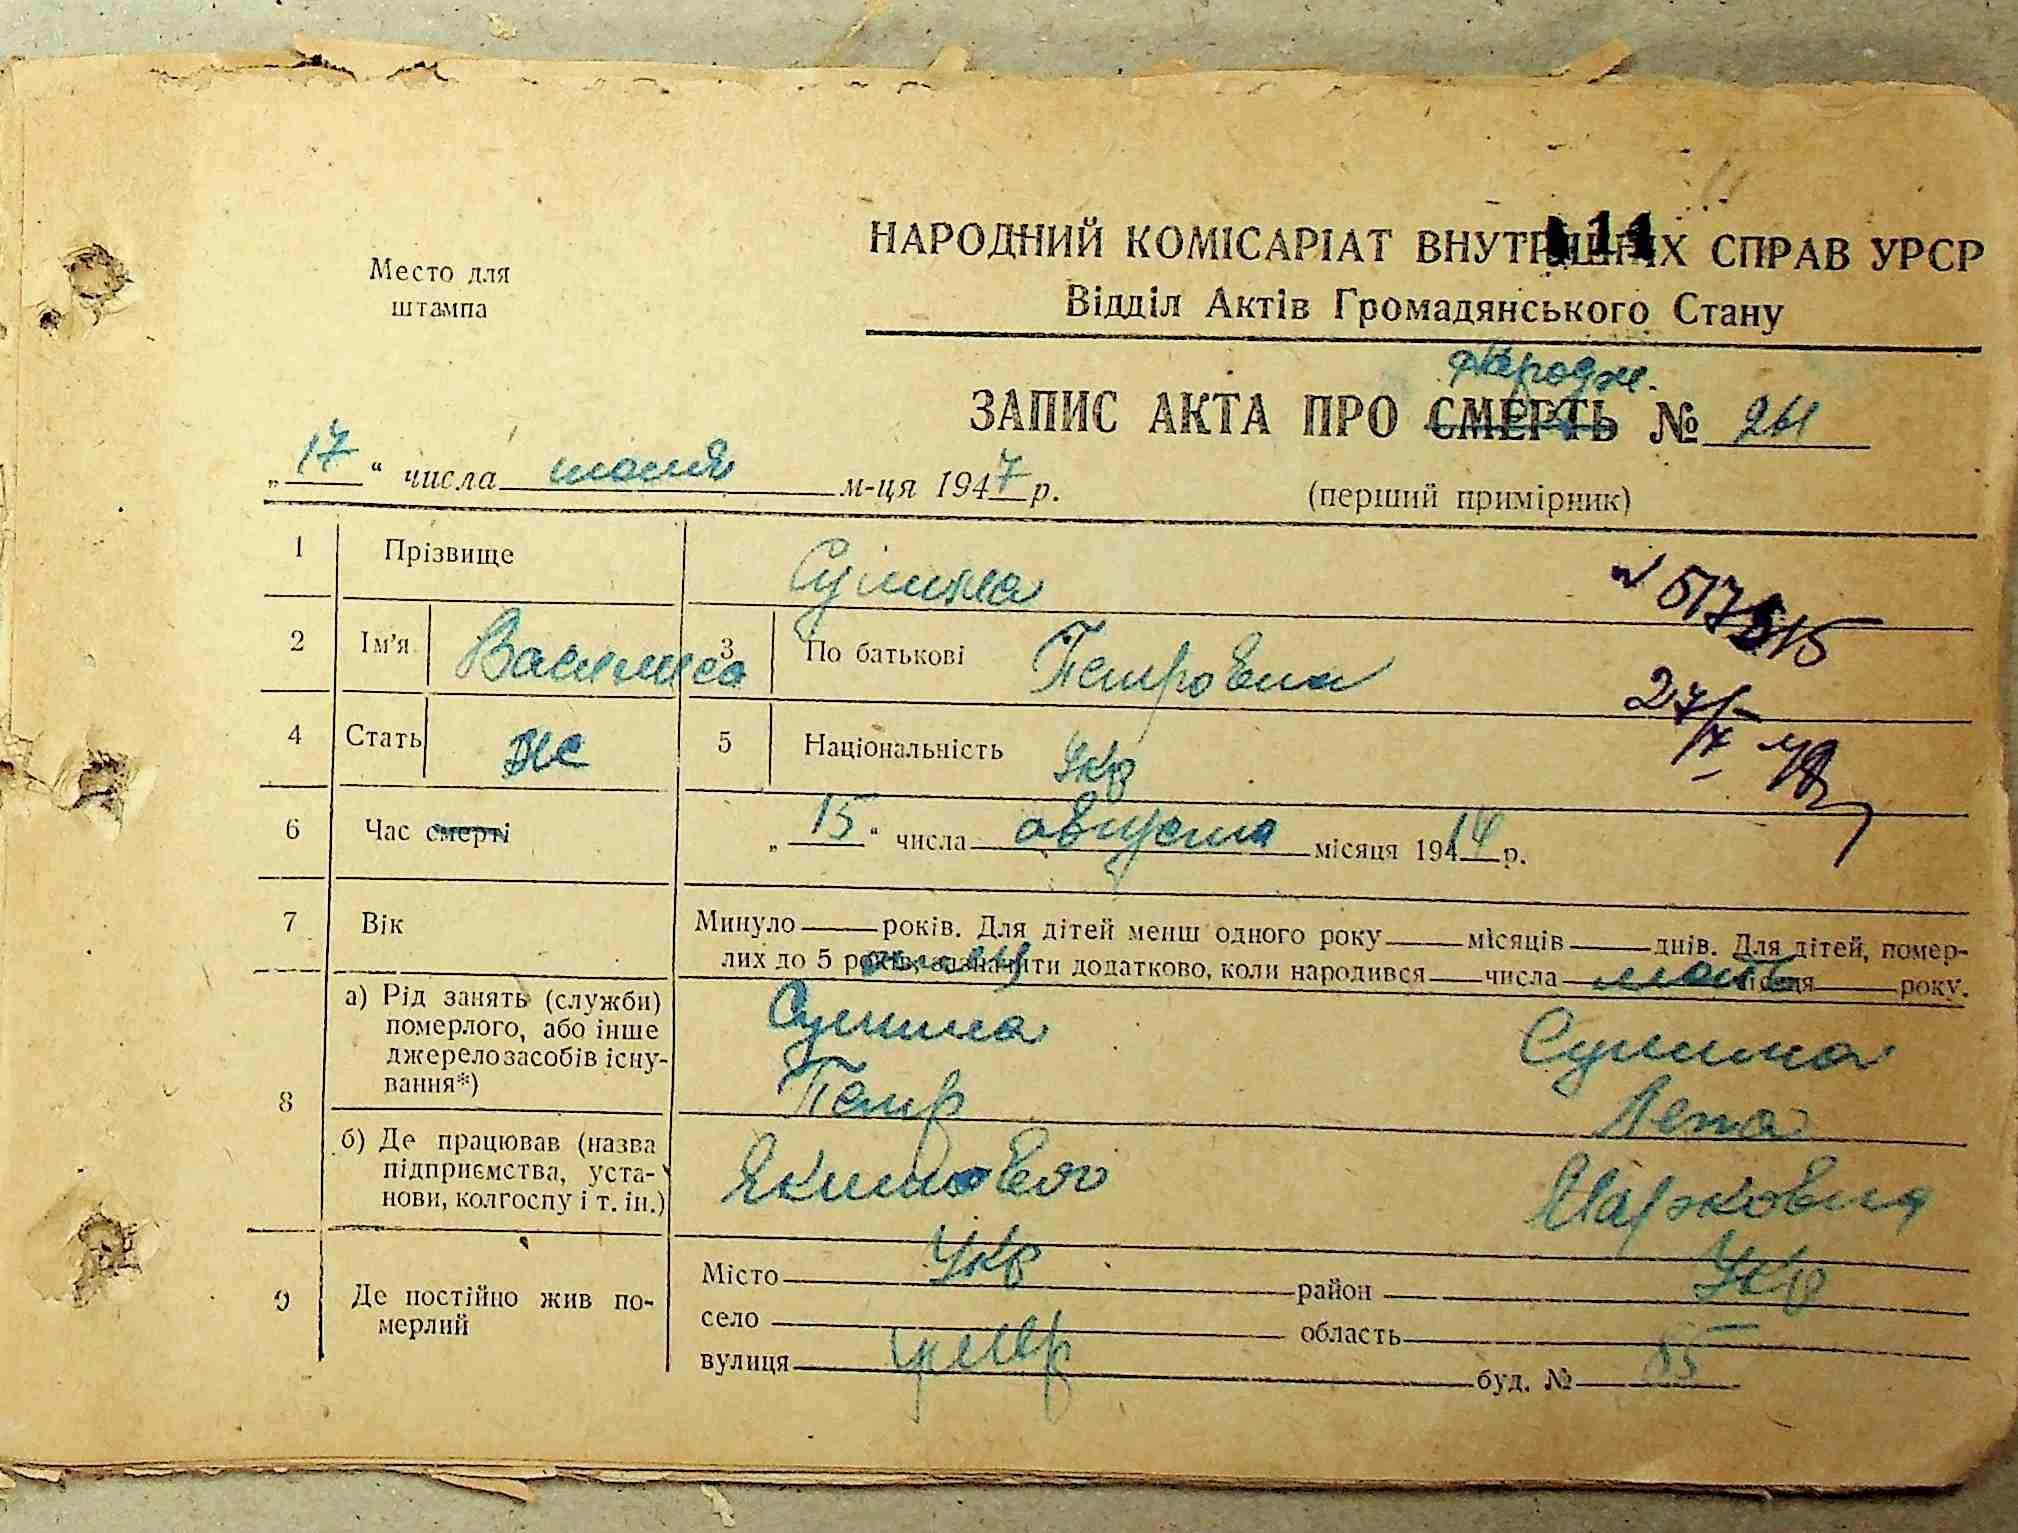 111
НАРОДНИЙ КОМІСАРІАТ ВНУТРІШНІХ СПРАВ УРСР
Место для штампа
Відділ Актів Громадянського Стану
народж.
ЗАПИС АКТА ПРО СМЕРТЬ № 261
„17“ числа июня м-ця 1947 р. (перший примірник)
1 Прізвище Сулима
№ 517515
2 Ім’я Василиса 3 По батькові Петровна
27/X 48
4 Стать же 5 Національність Укр
6 Час смерті „15“ числа августа місяця 1914 р.
7 Вік Минуло ___ років. Для дітей менш одного року ___ місяців ___ днів. Для дітей, помер-
лих до 5 років, зазначити додатково, коли народився ___ числа ___ місяця ___ року.
отец мать
8 а) Рід занять (служби) померлого, або інше джерело засобів існування*)
Сулима Сулима
Петр
б) Де працював (назва підприємства, установи, колгоспу і т. ін.)
Марковна
Укр Укр
9 Де постійно жив померлий
Місто ___ район ___
село ___ область ___
вулиця ___ буд. № 85